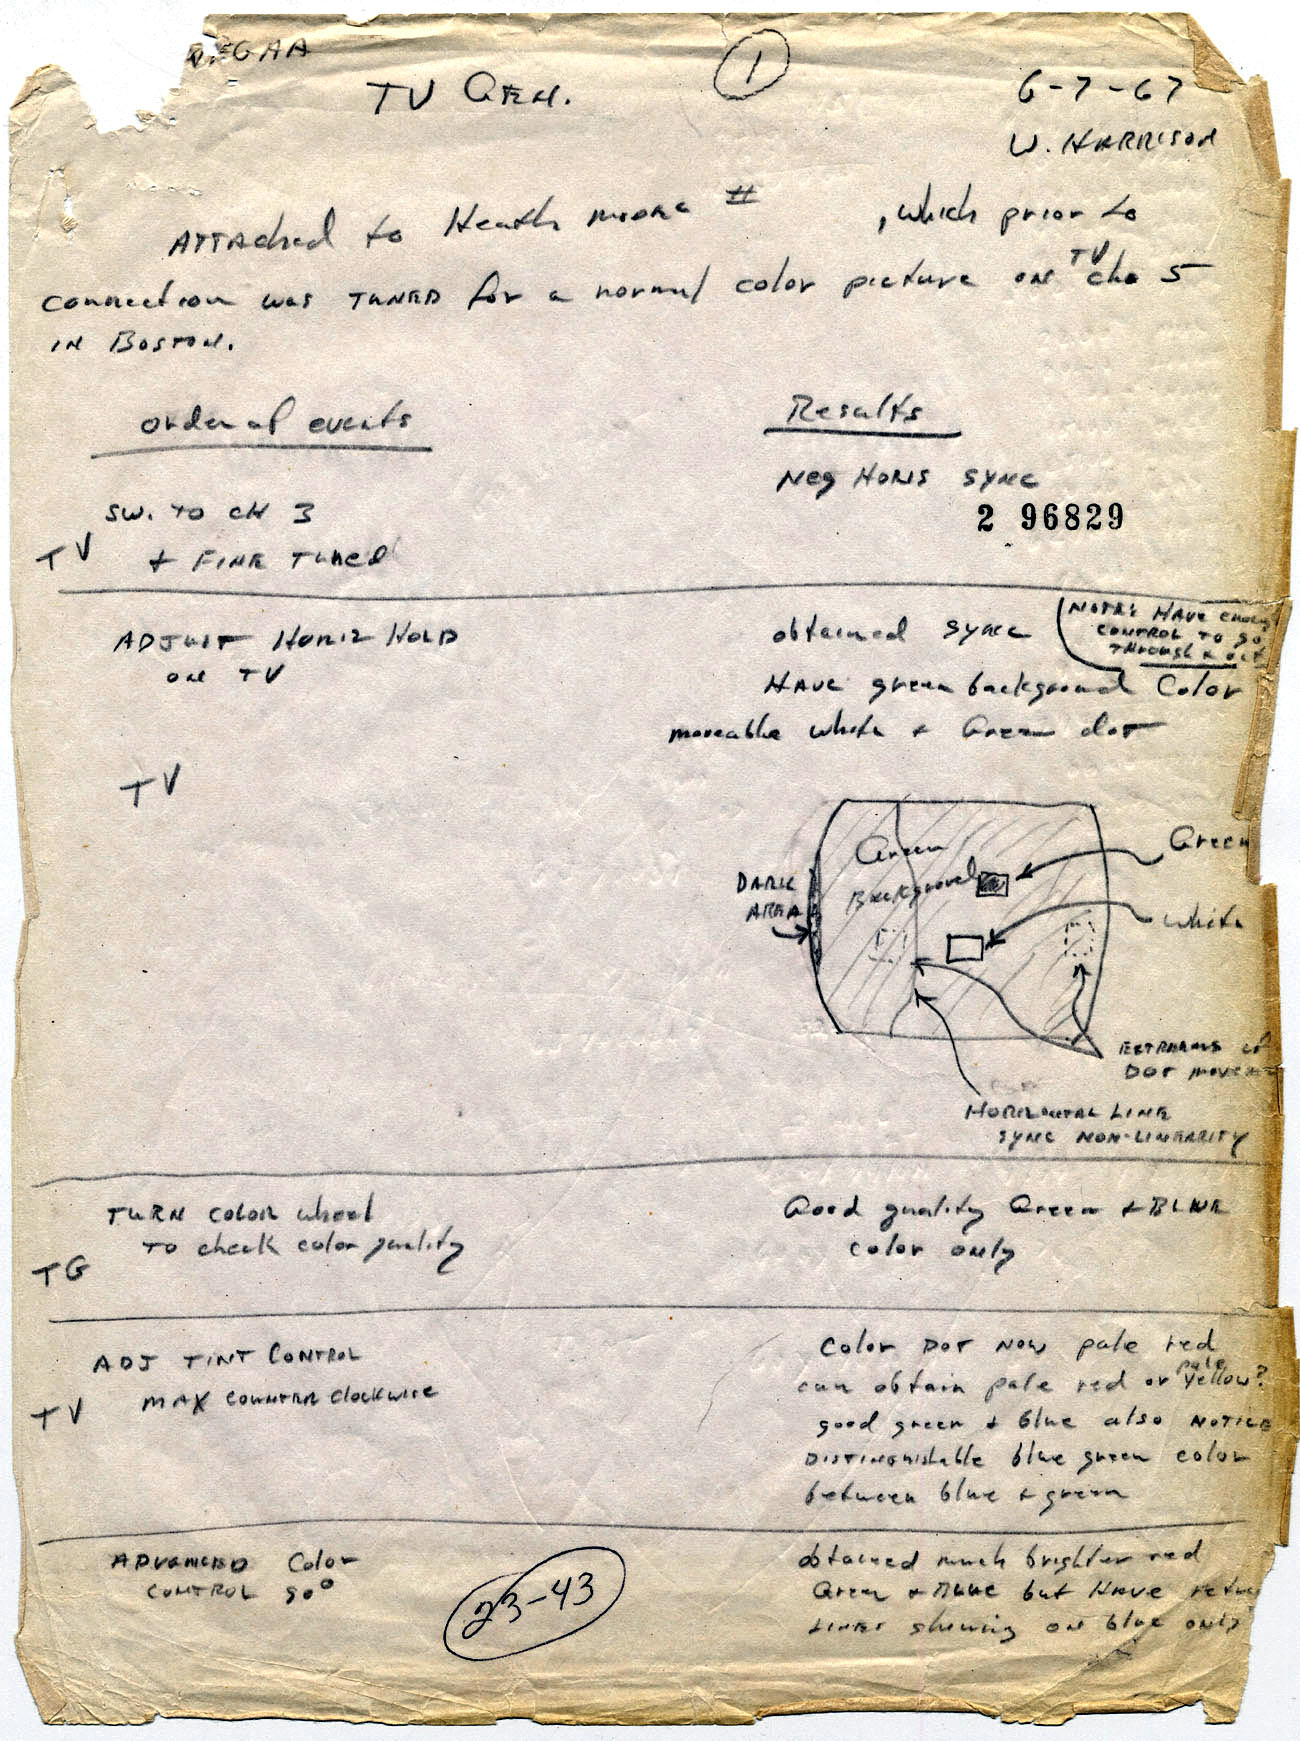 1
TV GEN.
6-7-67
W. HARRISON
ATTAched to Heath model # , which prior to
connection was TUNED for a normal color picture on TV cha 5
IN BOSTON.
order of events
Results
Neg HORIS SYNC
SW. TO CH 3
2 96829
TV + FINE TUNED
NOTE: HAVE enough
CONTROL TO go
THROUGH + out
ADJUST HORIZ HOLD
obtained SYNC
ON TV
HAVE green background Color
moveable white + Green dot
TV
Green
Green
Background
DARK
AREA
White
EXTREAMS OF
DOT
HORIZONTAL LINE
SYNC NON-LINEARITY
TURN COLOR wheel
Good quality Green + BLUE
TO check color quality
color only
TG
ADJ TINT CONTROL
Color DOT NOW pale red
MAX COUNTER CLOCKWISE
can obtain pale red or pale Yellow?
TV
good green + blue also NOTICE
DISTINGUISHABLE blue green color
between blue + green
ADVANCED Color
obtained much brighter red
CONTROL 90°
Green + BLUE but HAVE
LINES showing on blue ONLY
23-43